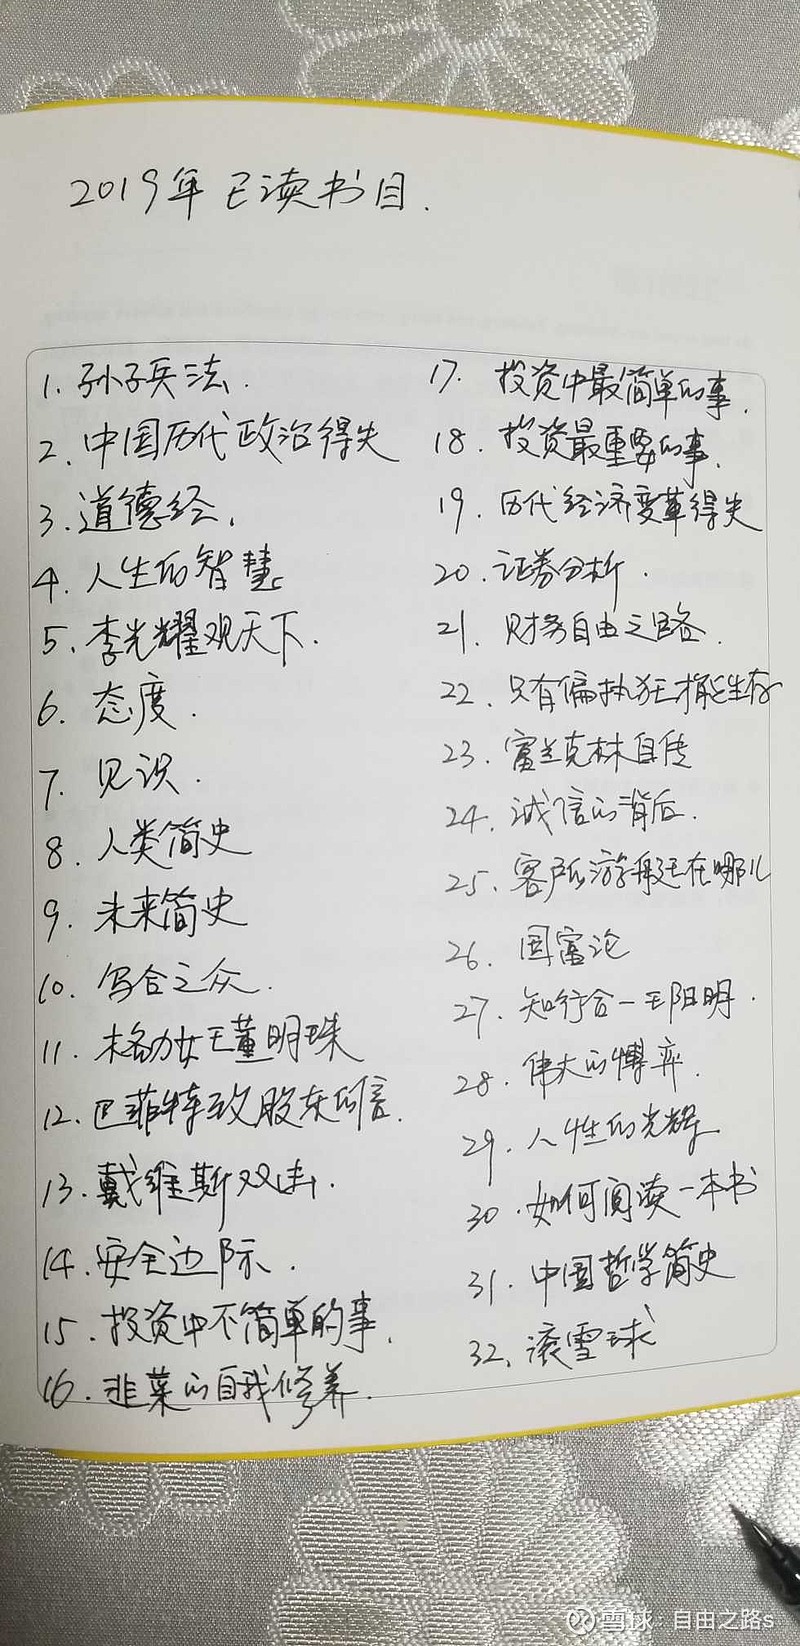 2019年已读书目.
1. 孙子兵法.
2. 中国历代政治得失
3. 道德经.
4. 人生的智慧
5. 李光耀观天下.
6. 态度.
7. 见识.
8. 人类简史
9. 未来简史
10. 乌合之众.
11. 格力女王董明珠
12. 巴菲特致股东的信.
13. 戴维斯双击.
14. 安全边际.
15. 投资中不简单的事.
16. 韭菜的自我修养.
17. 投资中最简单的事.
18. 投资最重要的事.
19. 历代经济变革得失
20. 证券分析.
21. 财务自由之路.
22. 只有偏执狂才能生存
23. 富兰克林自传
24. 诚信的背后.
25. 客户的游艇在哪儿
26. 国富论
27. 知行合一王阳明.
28. 伟大的博弈.
29. 人性的光辉
30. 如何阅读一本书
31. 中国哲学简史
32. 滚雪球
雪球:自由之路s